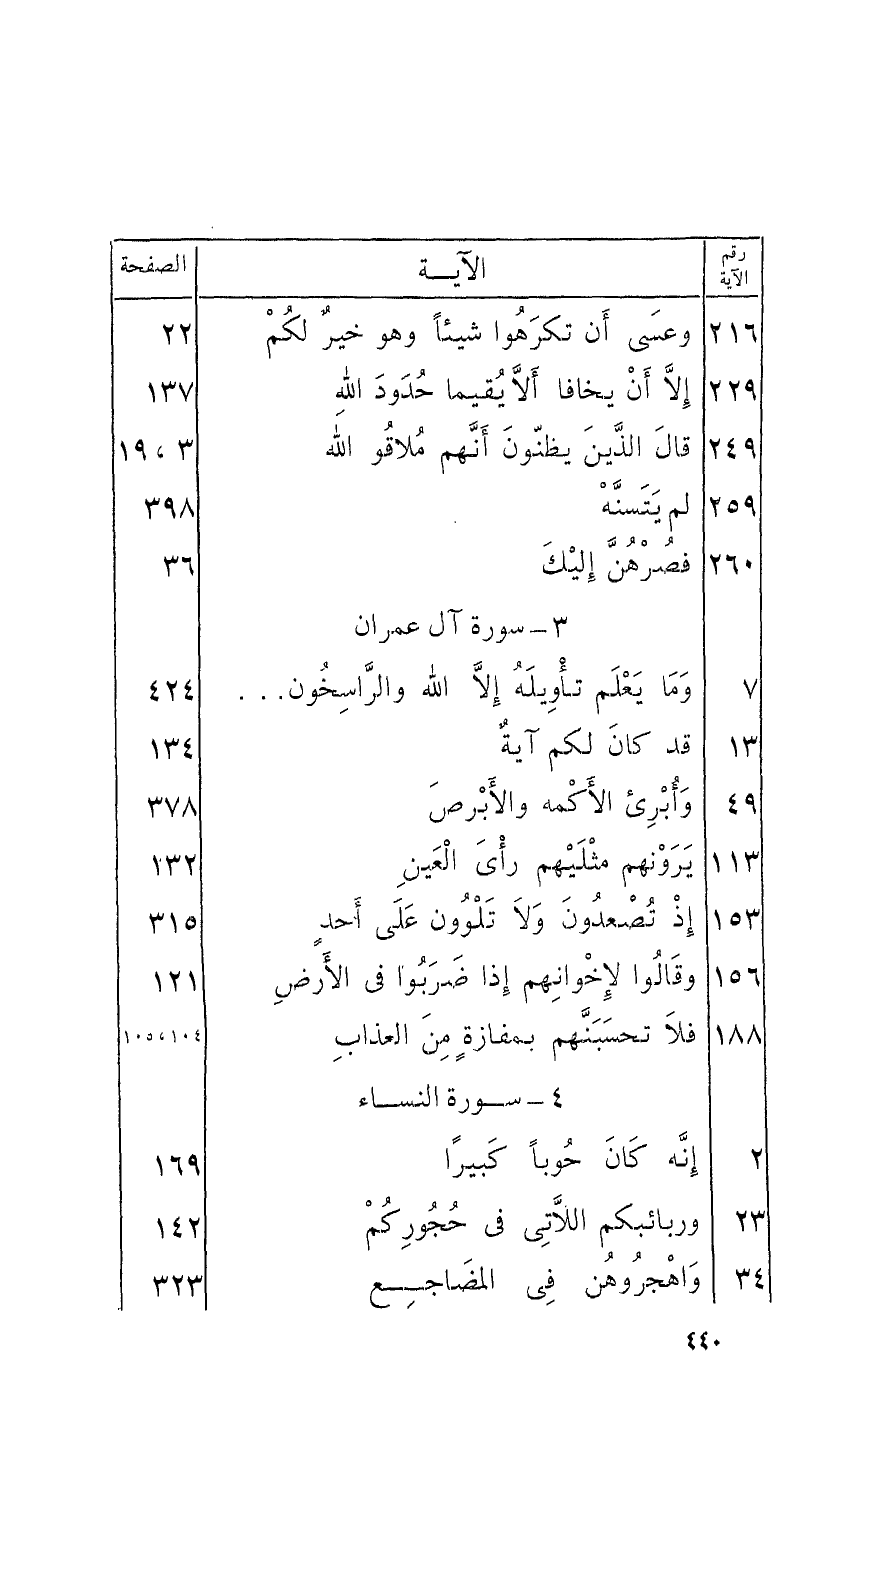 رقم الآية الآيــة الصفحة
٢١٦ وعسَى أَن تكرَهُوا شيئاً وهو خيرٌ لكُمْ ٢٢
٢٢٩ إِلاَّ أَنْ يخافا أَلاَّ يُقيما حُدُودَ اللهِ ١٣٧
٢٤٩ قالَ الذَّينَ يظنّونَ أَنَّهم مُلاقُو الله ٣ ، ١٩
٢٥٩ لم يَتَسنَّهْ ٣٩٨
٢٦٠ فصُرْهُنَّ إِليْكَ ٣٦
٣ ـ سورة آل عمران
٧ وَمَا يَعْلَم تأْوِيلَهُ إِلاَّ الله والرَّاسِخُون. . . ٤٢٤
١٣ قد كانَ لكم آيةٌ ١٣٤
٤٩ وَأُبْرِئ الأَكْمه والأَبْرصَ ٣٧٨
١١٣ يَرَوْنهم مثْلَيْهم رأْىَ الْعَينِ ١٣٢
١٥٣ إِذْ تُصْعدُونَ وَلاَ تَلْوُون عَلَى أَحدٍ ٣١٥
١٥٦ وقَالُوا لإِخْوانِهم إِذا ضَرَبُوا فى الأَرضِ ١٢١
١٨٨ فلاَ تحسَبَنَّهم بمفازةٍ مِنَ العذابِ ١٠٤ ، ١٠٥
٤ ـ سـورة النسـاء
٢ إِنَّه كَانَ حُوباً كَبيرًا ١٦٩
٢٣ وربائبكم اللاَّتِى فى حُجُورِكُمْ ١٤٢
٣٤ وَاهْجرُوهُن فِى المضَاجِـع ٣٢٣
٤٤٠